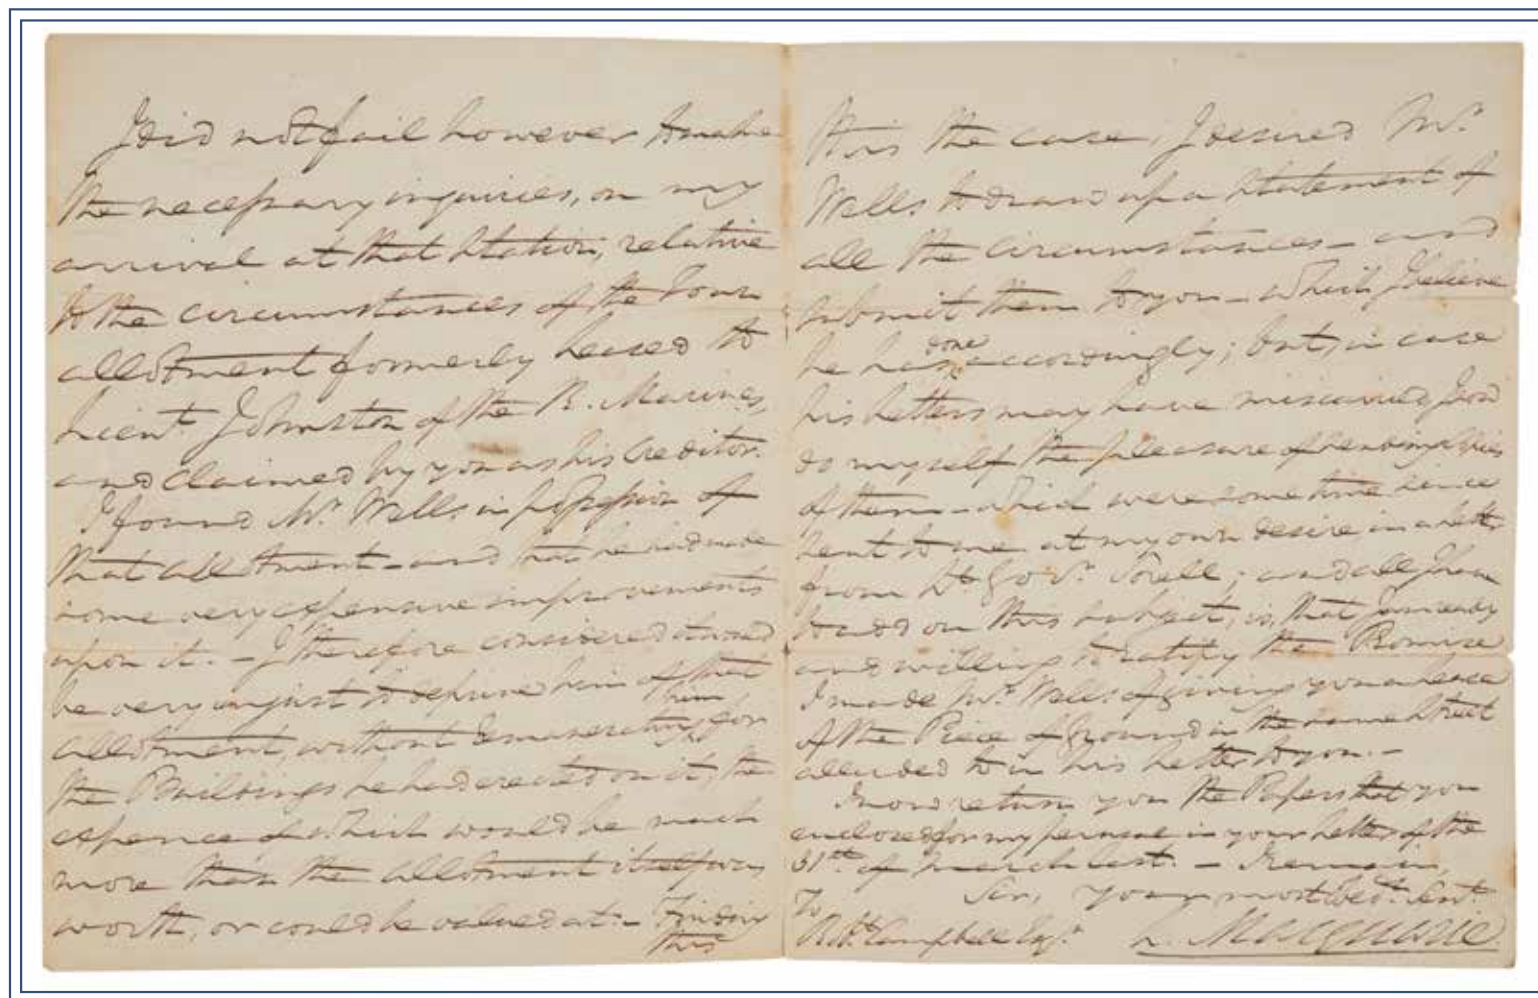 I did not fail however to make
the necessary inquiries, on my
arrival at that Station, relative
to the circumstances of the Town
allotment formerly leased to
Lieut. Johnston of the R. Marines,
and claimed by you as his Creditor.
I found Mr. Wells in possession of
that allotment – and that he had made
some very expensive improvements
upon it. – I therefore considered it would
be very unjust to deprive him of that
allotment, without remunerating him for
the Buildings he had erected on it, the
expence of which would be much
more than the allotment itself was
worth, or could be valued at. – Finding
this
this the case, I desired Mr.
Wells to draw up a Statement of
all the circumstances – and
submit them to you – which I believe
he has done accordingly; but, in case
his letters may have miscarried I now
do myself the pleasure of sending Copies
of them – which were some time since
sent to me at my own desire in a letter
from Lt. Govr. Sorell; and all I have
to add on this subject, is, that I am ready
and willing to ratify the Promise
I made Mr. Wells of giving you a lease
of the Piece of Ground in the same Street
alluded to in his letter to you. –
I now return you the Papers that you
enclosed for my perusal in your letter of the
31st. of March last. – I remain,
Sir, your most obedt. Servt.
To
Robt. Campbell Esqr. L. Macquarie